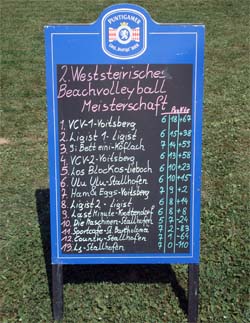 PUNTIGAMER
2. Weststeirische
Beachvolleyball
Meisterschaft
1. VCV-1-Voitsberg 6 18 +67
2. Ligist 1 - Ligist 6 15 +38
4. VCV-2-Voitsberg 6 13 +58
5. Los BlocKos-Lieboch 6 10 +23
6. Ulu Ulu-Stallhofen 6 10 +15
7. Ham & Eggs-Voitsberg 7 9 +2
8. Ligist 2 - Ligist 6 8 +14
9. Last Minute- 6 8
10. Die Maschinen-Stallhofen 6 7
11. Sportcafe-St. Bartholomä 7 2
12. Country-Stallhofen 7 1 -64
13. -Stallhofen 7 0 -110